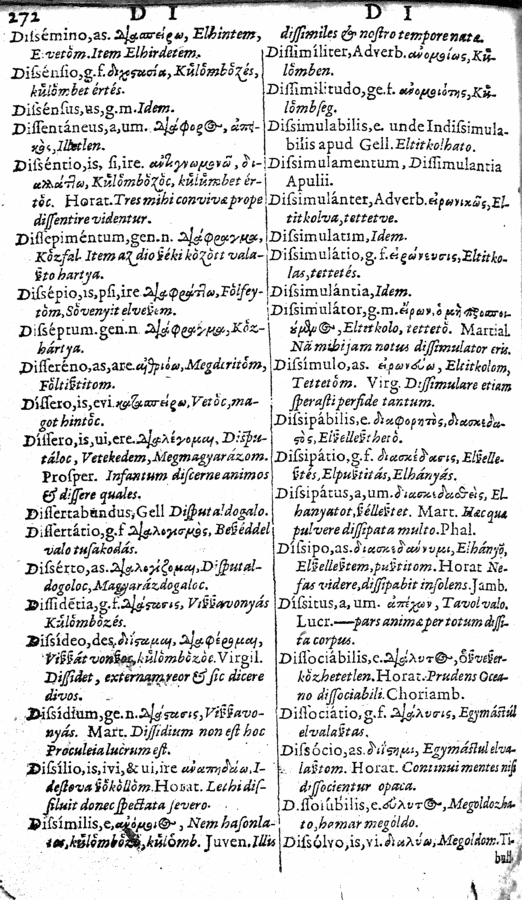 272 D I D I
Dissémino, as. διασπείρω, Elhintem,
E vetőm. Item Elhirdetem.
Dissénsio, g.f. διχοστασία, Kŭlőmbőzés,
kŭlőmbet értés.
Dissénsus, us, g.m. Idem.
Dissentáneus, a, um. διάφορος,
Illetlen.
Disséntio, is, si, ire.
Kŭlőmbőzőc, kŭlŭmbet ér-
tőc. Horat. Tres mihi conviva prope
dissentire videntur.
Dissepiméntum, gen. n. διάφραγμα,
Kőzfal. Item az dio béki kőzőtt vala-
bto hartya.
Dissépio, is, psi, ire διαφράττω, Főlfey-
tőm, Sővenyit elvebem.
Disséptum. gen. n. διάφραγμα, Kőz-
hártya.
Disseréno, as, are. αἰθριόω, Megderitőm,
Főltibtitom.
Díssero, is, evi. κατασπείρω, Vetőc, ma-
got hintőc.
Díssero, is, ui, ere. διαλέγομαι, Disputálóc,
Vetekedem, Megmagyarázom.
Prosper. Infantum discerne animos
& dissere quales.
Dissertabundus, Gell Disputaldogalo.
Dissertátio, g.f διαλογισμὸς, Bebéddel
valo tusakodás.
Dissérto, as. διαλογίζομαι, Disputal-
dogoloc, Magyarázdogaloc.
Dissidétia, g.f. διάστασις, Vibbavonyás
Kŭlőmbőzés.
Dissídeo, des, διίσταμαι, διαφέρομαι,
Vibbát vonbos, kŭlőmbőzőc. Virgil.
Dissidet, externam reor & sic dicere
divos.
Dissídium, ge. n. διάστασις, Vibbavo-
nyás. Mart. Dissidium non est hoc
Proculeia lucrum est.
Dissílio, is, ivi, & ui, ire ἀναπηδάω, I-
destova bőkőllőm. Horat. Lethi dis-
siluit donec spectata severo.
Dissímilis, e, ἀνόμοιος, Nem hasonla-
tos, kŭlőmbőző, kŭlőmb. Juven. Illis
dissimiles & nostro tempore nata.
Dissimíliter, Adverb. ἀνομοίως, Kŭ-
lőmben.
Dissimilitudo, ge. f. ἀνομοιότης, Kŭ-
lőmbseg.
Dissimulabilis, e. unde Indissimula-
bilis apud Gell. Eltitkolhato.
Dissimulamentum, Dissimulantia
Apulii.
Dissimulánter, Adverb. εἰρωνικῶς, El-
titkolva, tettetve.
Dissimulatim, Idem.
Dissimulátio, g.f. εἰρώνευσις, Eltitko-
las, tettetés.
Dissimulántia, Idem.
Dissimulátor, g.m. εἴρων,
Eltitkolo, tettető. Martial
Nā mihi jam notus dissimulator eris.
Dissímulo, as. εἰρωνεύω, Eltitkolom,
Tettetőm. Virg. Dissimulare etiam
sperasti perfide tantum.
Dissipábilis, e. διαφορητὸς, διασκεδα-
σὸς, Elbellebthető.
Dissipátio, g.f. διασκέδασις, Elbelle-
btés, Elpubtitás, Elhányás.
Dissipátus, a, um. διασκεδασθεὶς, El-
hanyatot, béllebtet. Mart. Hacqua
pulvere dissipata multo. Phal.
Díssipo, as. διασκεδάννυμι, Elhányő,
Elbellebtem, pubtitom. Horat Ne-
fas videre, dissipabit insolens. Jamb.
Díssitus, a, um. ἀπέχων, Tavol valo.
Lucr.—pars anima per totum dissi-
ta corpus.
Dissociábilis, e. διάλυτος, őbveber-
kőzhetetlen. Horat. Prudens Ocea-
no dissociabili. Choriamb.
Dissociátio, g.f. διάλυσις, Egymástŭl
elvalabtas.
Dissócio, as. διίστημι, Egymástul elva-
labtom. Horat. Continui montes nisi
dissocientur opaca.
Dissolúbilis, e. εὔλυτος, Megoldozha-
to, hamar megoldo.
Dissólvo, is, vi. διαλύω, Megoldom. Ti-
bull.